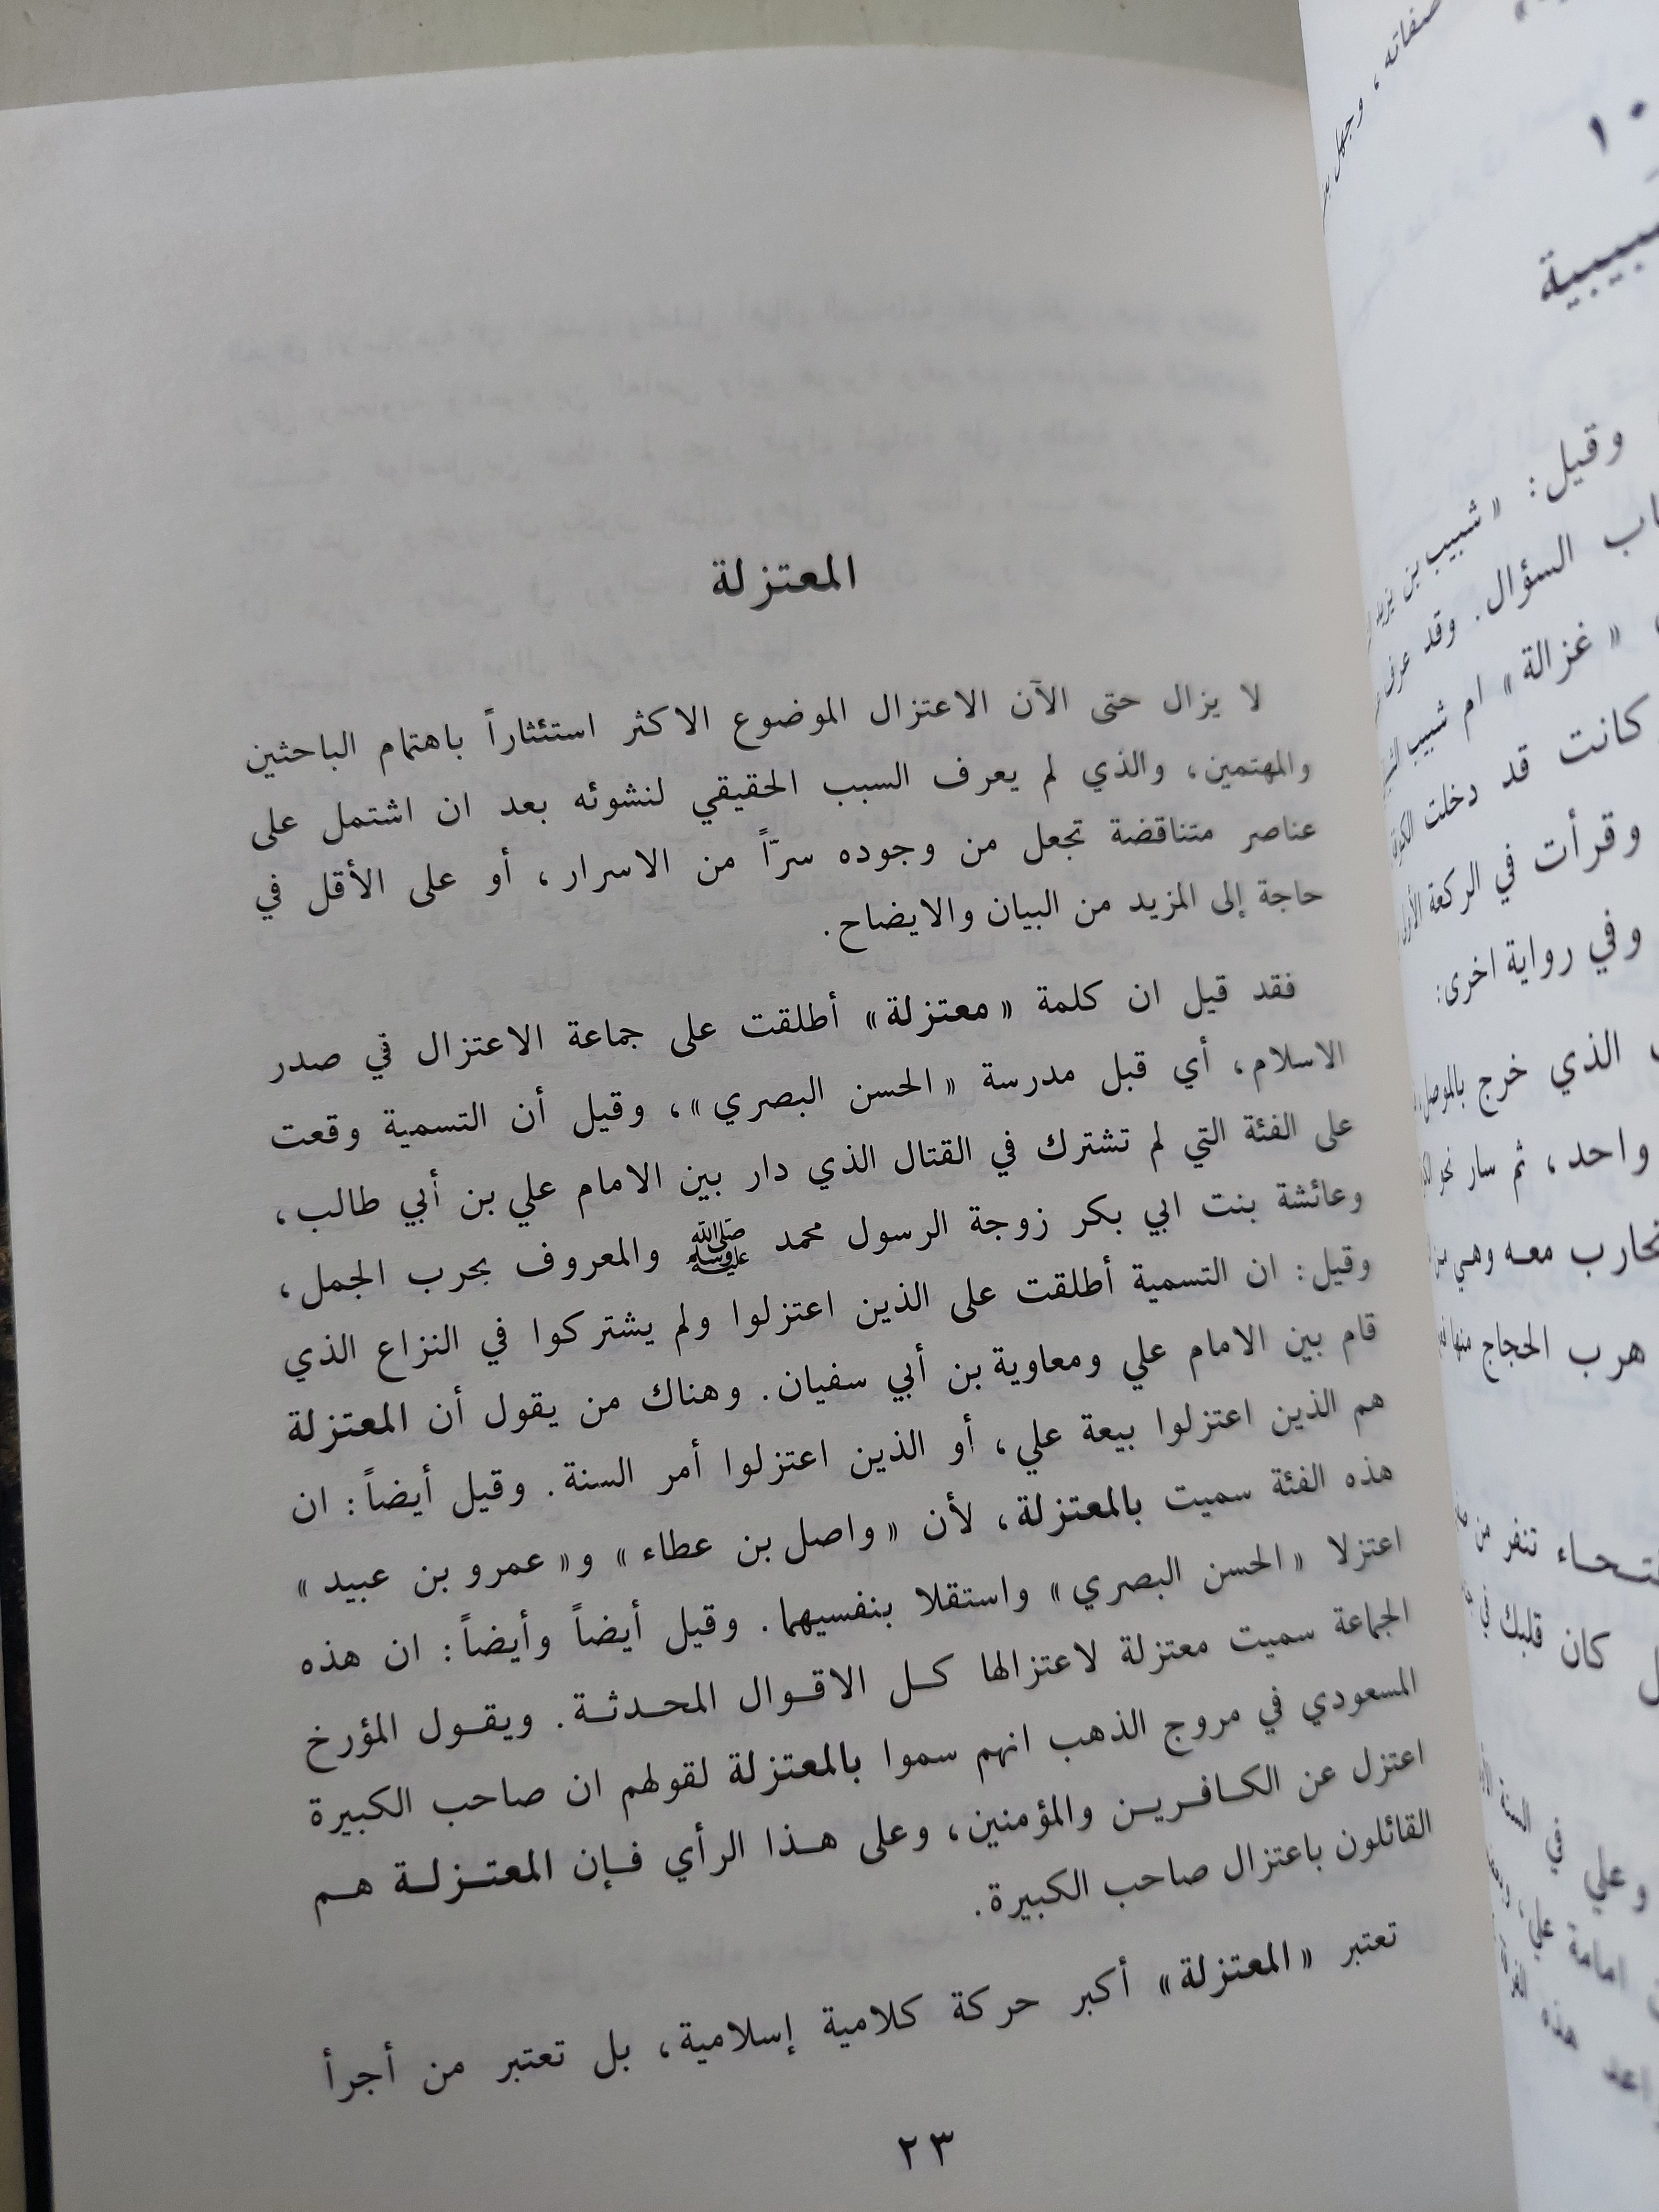 المعتزلة
لا يزال حتى الآن الاعتزال الموضوع الاكثر استئثاراً باهتمام الباحثين
والمهتمين، والذي لم يعرف السبب الحقيقي لنشوئه بعد ان اشتمل على
عناصر متناقضة تجعل من وجوده سرّاً من الاسرار، أو على الأقل في
حاجة إلى المزيد من البيان والايضاح.
فقد قيل ان كلمة «معتزلة» أطلقت على جماعة الاعتزال في صدر
الاسلام، أي قبل مدرسة «الحسن البصري»، وقيل أن التسمية وقعت
على الفئة التي لم تشترك في القتال الذي دار بين الامام علي بن أبي طالب،
وعائشة بنت ابي بكر زوجة الرسول محمد ﷺ والمعروف بحرب الجمل،
وقيل: ان التسمية أطلقت على الذين اعتزلوا ولم يشتركوا في النزاع الذي
قام بين الامام علي ومعاوية بن أبي سفيان. وهناك من يقول أن المعتزلة
هم الذين اعتزلوا بيعة علي، أو الذين اعتزلوا أمر السنة. وقيل أيضاً: ان
هذه الفئة سميت بالمعتزلة، لأن «واصل بن عطاء» و«عمرو بن عبيد»
اعتزلا «الحسن البصري» واستقلا بنفسيهما. وقيل أيضاً وأيضاً: ان هذه
الجماعة سميت معتزلة لاعتزالها كل الاقوال المحدثة. ويقول المؤرخ
المسعودي في مروج الذهب انهم سموا بالمعتزلة لقولهم ان صاحب الكبيرة
اعتزل عن الكافرين والمؤمنين، وعلى هذا الرأي فإن المعتزلة هم
القائلون باعتزال صاحب الكبيرة.
تعتبر «المعتزلة» أكبر حركة كلامية إسلامية، بل تعتبر من أجرأ
٢٣
صفاته، وجهل
١٠
وقيل: «شبيب بن يزيد
السؤال. وقد عرف
«غزالة» ام شبيب
كانت قد دخلت
وقرأت في الركعة
وفي رواية اخرى:
الذي خرج بالموصل
واحد، ثم سار نحو
معه وهي
هرب الحجاج منها
تنفر من
كان قلبك في
وعلي في السنة
امامة علي،
هذه